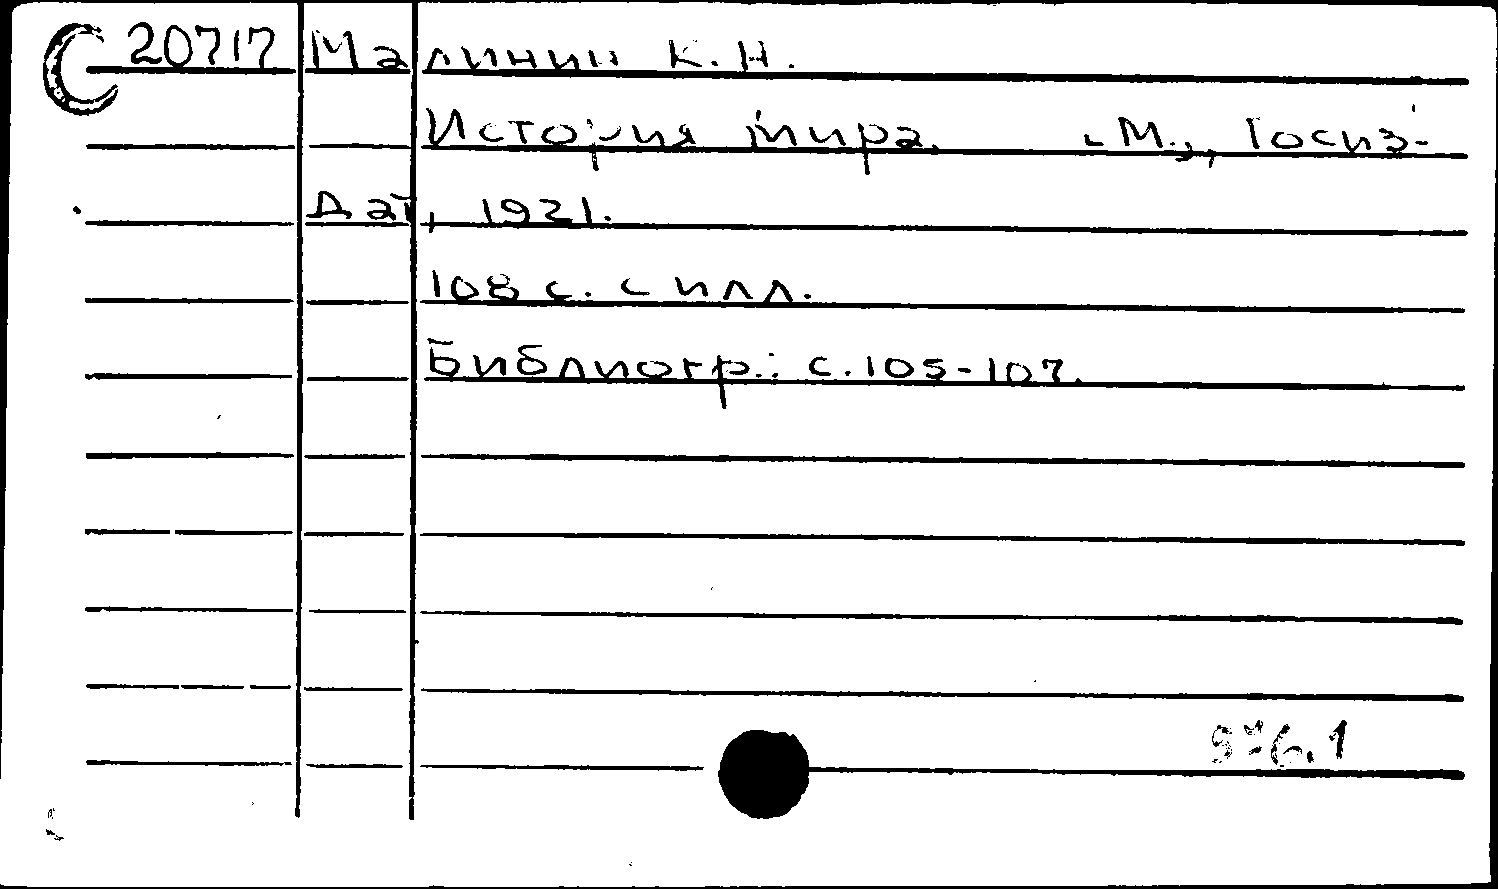 20717 Малинин К.Н.
История мира. М., Госиз-
дат, 1921.
108 с. с илл.
Библиогр.: с. 105-107.